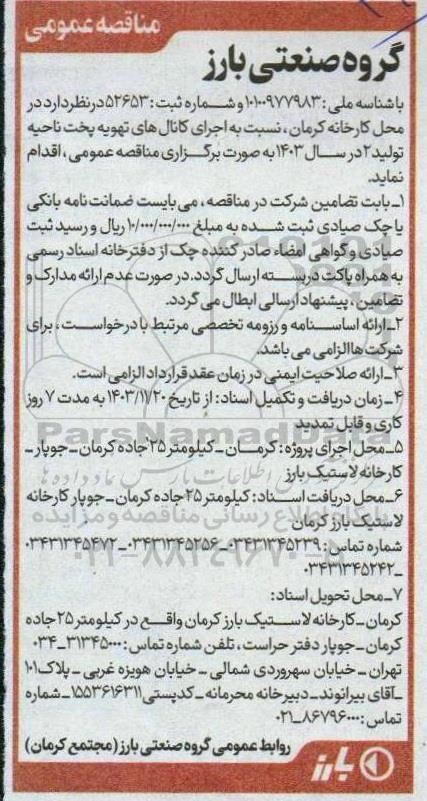 مناقصه عمومی
گروه صنعتی بارز
با شناسه ملی : ۱۰۱۰۰۹۷۷۹۸۳ و شماره ثبت : ۵۲۶۵۳ در نظر دارد در
محل کارخانه کرمان ، نسبت به اجرای کانال های تهویه پخت ناحیه
تولید ۲ در سال ۱۴۰۳ به صورت برگزاری مناقصه عمومی ، اقدام
نماید.
۱ـ بابت تضامین شرکت در مناقصه ، می بایست ضمانت نامه بانکی
یا چک صیادی ثبت شده به مبلغ ۱۰/۰۰۰/۰۰۰/۰۰۰ ریال و رسید ثبت
صیادی و گواهی امضاء صادر کننده چک از دفترخانه اسناد رسمی
به همراه پاکت دربسته ارسال گردد. در صورت عدم ارائه مدارک و
تضامین ، پیشنهاد ارسالی ابطال می گردد.
۲ـ ارائه اساسنامه و رزومه تخصصی مرتبط با درخواست ، برای
شرکت ها الزامی می باشد.
۳ـ ارائه صلاحیت ایمنی در زمان عقد قرارداد الزامی است.
۴ـ زمان دریافت و تکمیل اسناد : از تاریخ ۱۴۰۳/۱۱/۲۰ به مدت ۷ روز
کاری و قابل تمدید
ParsNamadData
۵ـ محل اجرای پروژه : کرمـــان ـ کیلومتر ۲۵ جاده کرمان ـ جوپار ـ
کارخانه لاستیک بارز
۶ـ محل دریافت اسـناد : کیلومتر ۲۵ جاده کرمان ـ جوپار کارخانه
لاستیک بارز کرمان
پایگاه اطلاع رسانی مناقصه و مزایده
شماره تماس : ۰۳۴۳۱۳۴۵۲۳۹ـ ۰۳۴۳۱۳۴۵۲۵۶ـ ۰۳۴۳۱۳۴۵۴۷۲
ـ ۰۳۴۳۱۳۴۵۲۴۲
۰۲۱-۸۸۳۴۹۶۷۰-۵
۷ـ محل تحویل اسناد :
کرمان ـ کارخانه لاســتیک بارز کرمان واقـع در کیلومتر ۲۵ جاده
کرمان ـ جوپار دفتر حراست ، تلفن شماره تماس : ۳۱۳۴۵۰۰۰ـ۰۳۴
تهران ـ خیابان سهروردی شمالی ـ خیابان هویزه غربی ـ پلاک ۱۰۱
ـ آقای بیرانوند ـ دبیرخانه محرمانه ـ کدپستی ۱۵۵۳۶۱۶۳۱۱ ـ شماره
تماس : ۸۶۷۹۶۰۰۰ـ۰۲۱
روابط عمومی گروه صنعتی بارز (مجتمع کرمان)
بارز